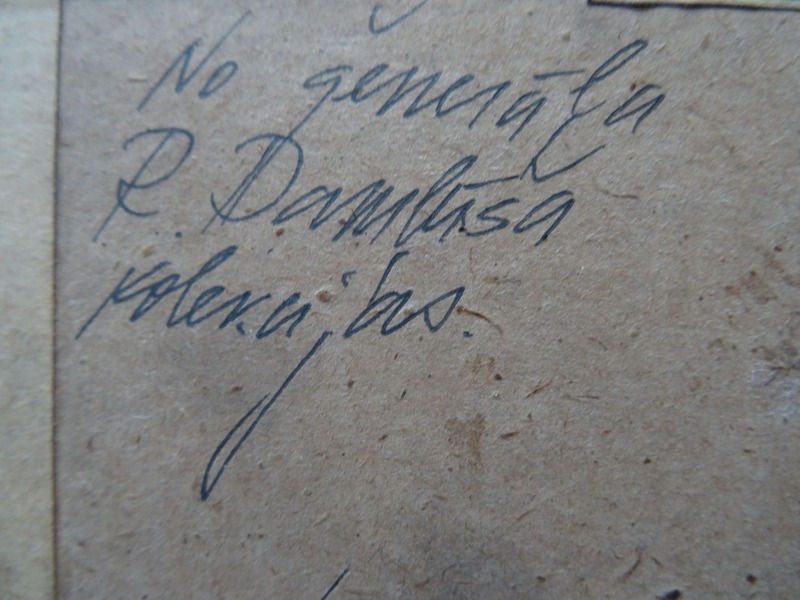 No ģenerāļa
R. Dambīša
kolekcijas.